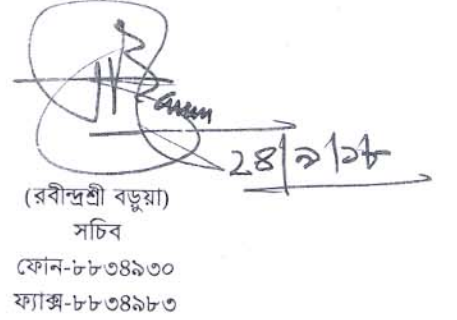 ২৪|৯|১৮
(রবীন্দ্রশ্রী বড়ুয়া)
সচিব
ফোন-৮৮৩৪৯৩০
ফ্যাক্স-৮৮৩৪৯৮৩